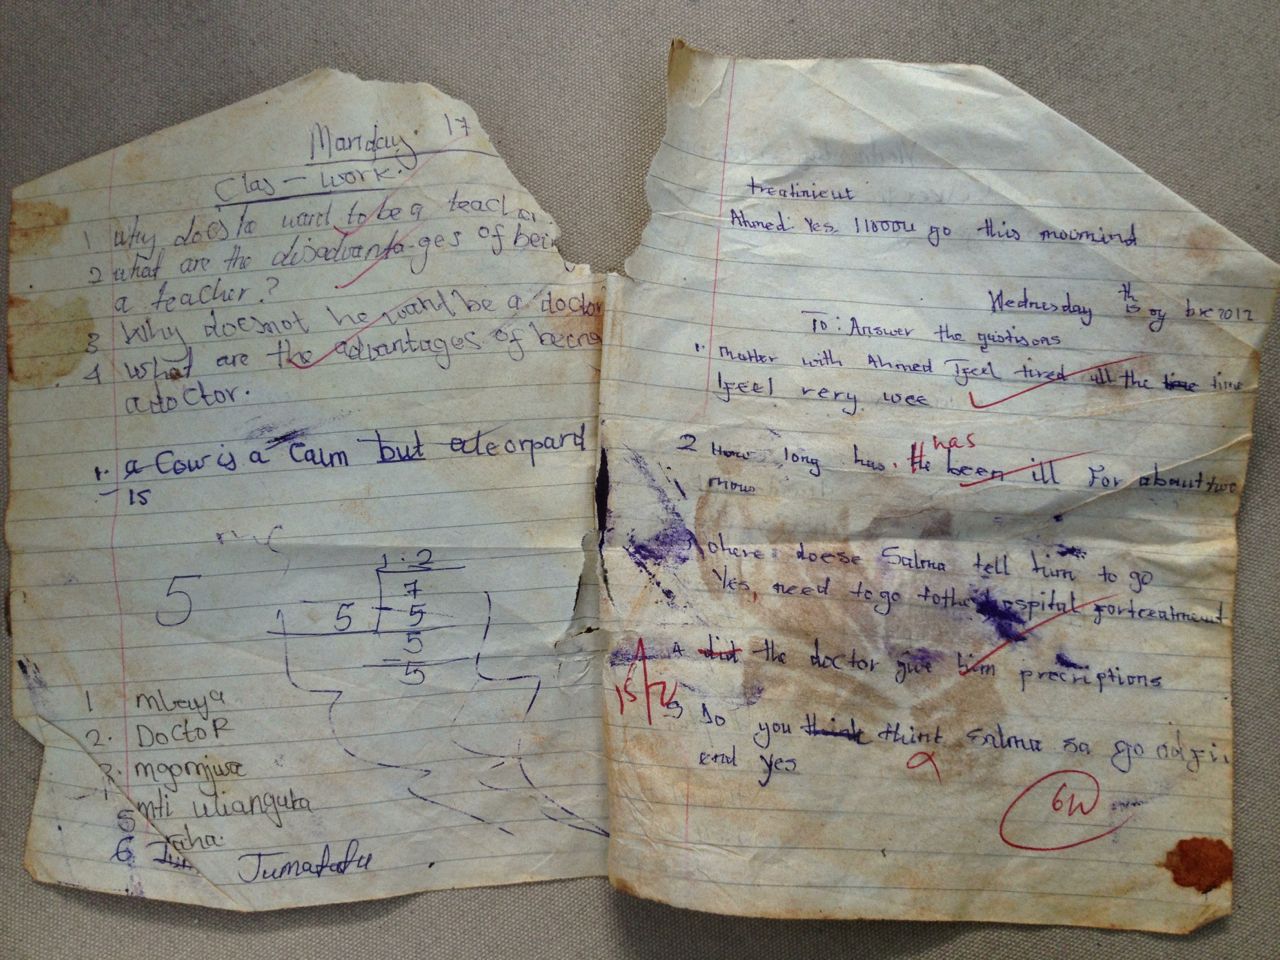 Monday 17
Clas - work.
1 Why does he want to be a teacher
2 what are the disadvanta-ges of bein
a teacher?
3 Why doesnot he want be a doctor
4 What are the advantages of being
a doctor.
1. a Cow is a Calm but a leorpard
is
5
1.2
7
5 5
5
5
1 mbaya
2. DoctoR
3. mgomjwa
mti
5 raha
6 Jumatatu
treatinient
Ahmed. Yes, I go this moornind
Wednesday th 2012
To: Answer the qustisons
1. matter with Ahmed I feel tired all the time time
I feel very wee
2 How long has. He has been ill For about two
mow
3 where doese Salma tell him to go
Yes, need to go to the hospital for treatment
4 did the doctor give him precriptions
15/12
5 Do you think think Salma sa go
end yes